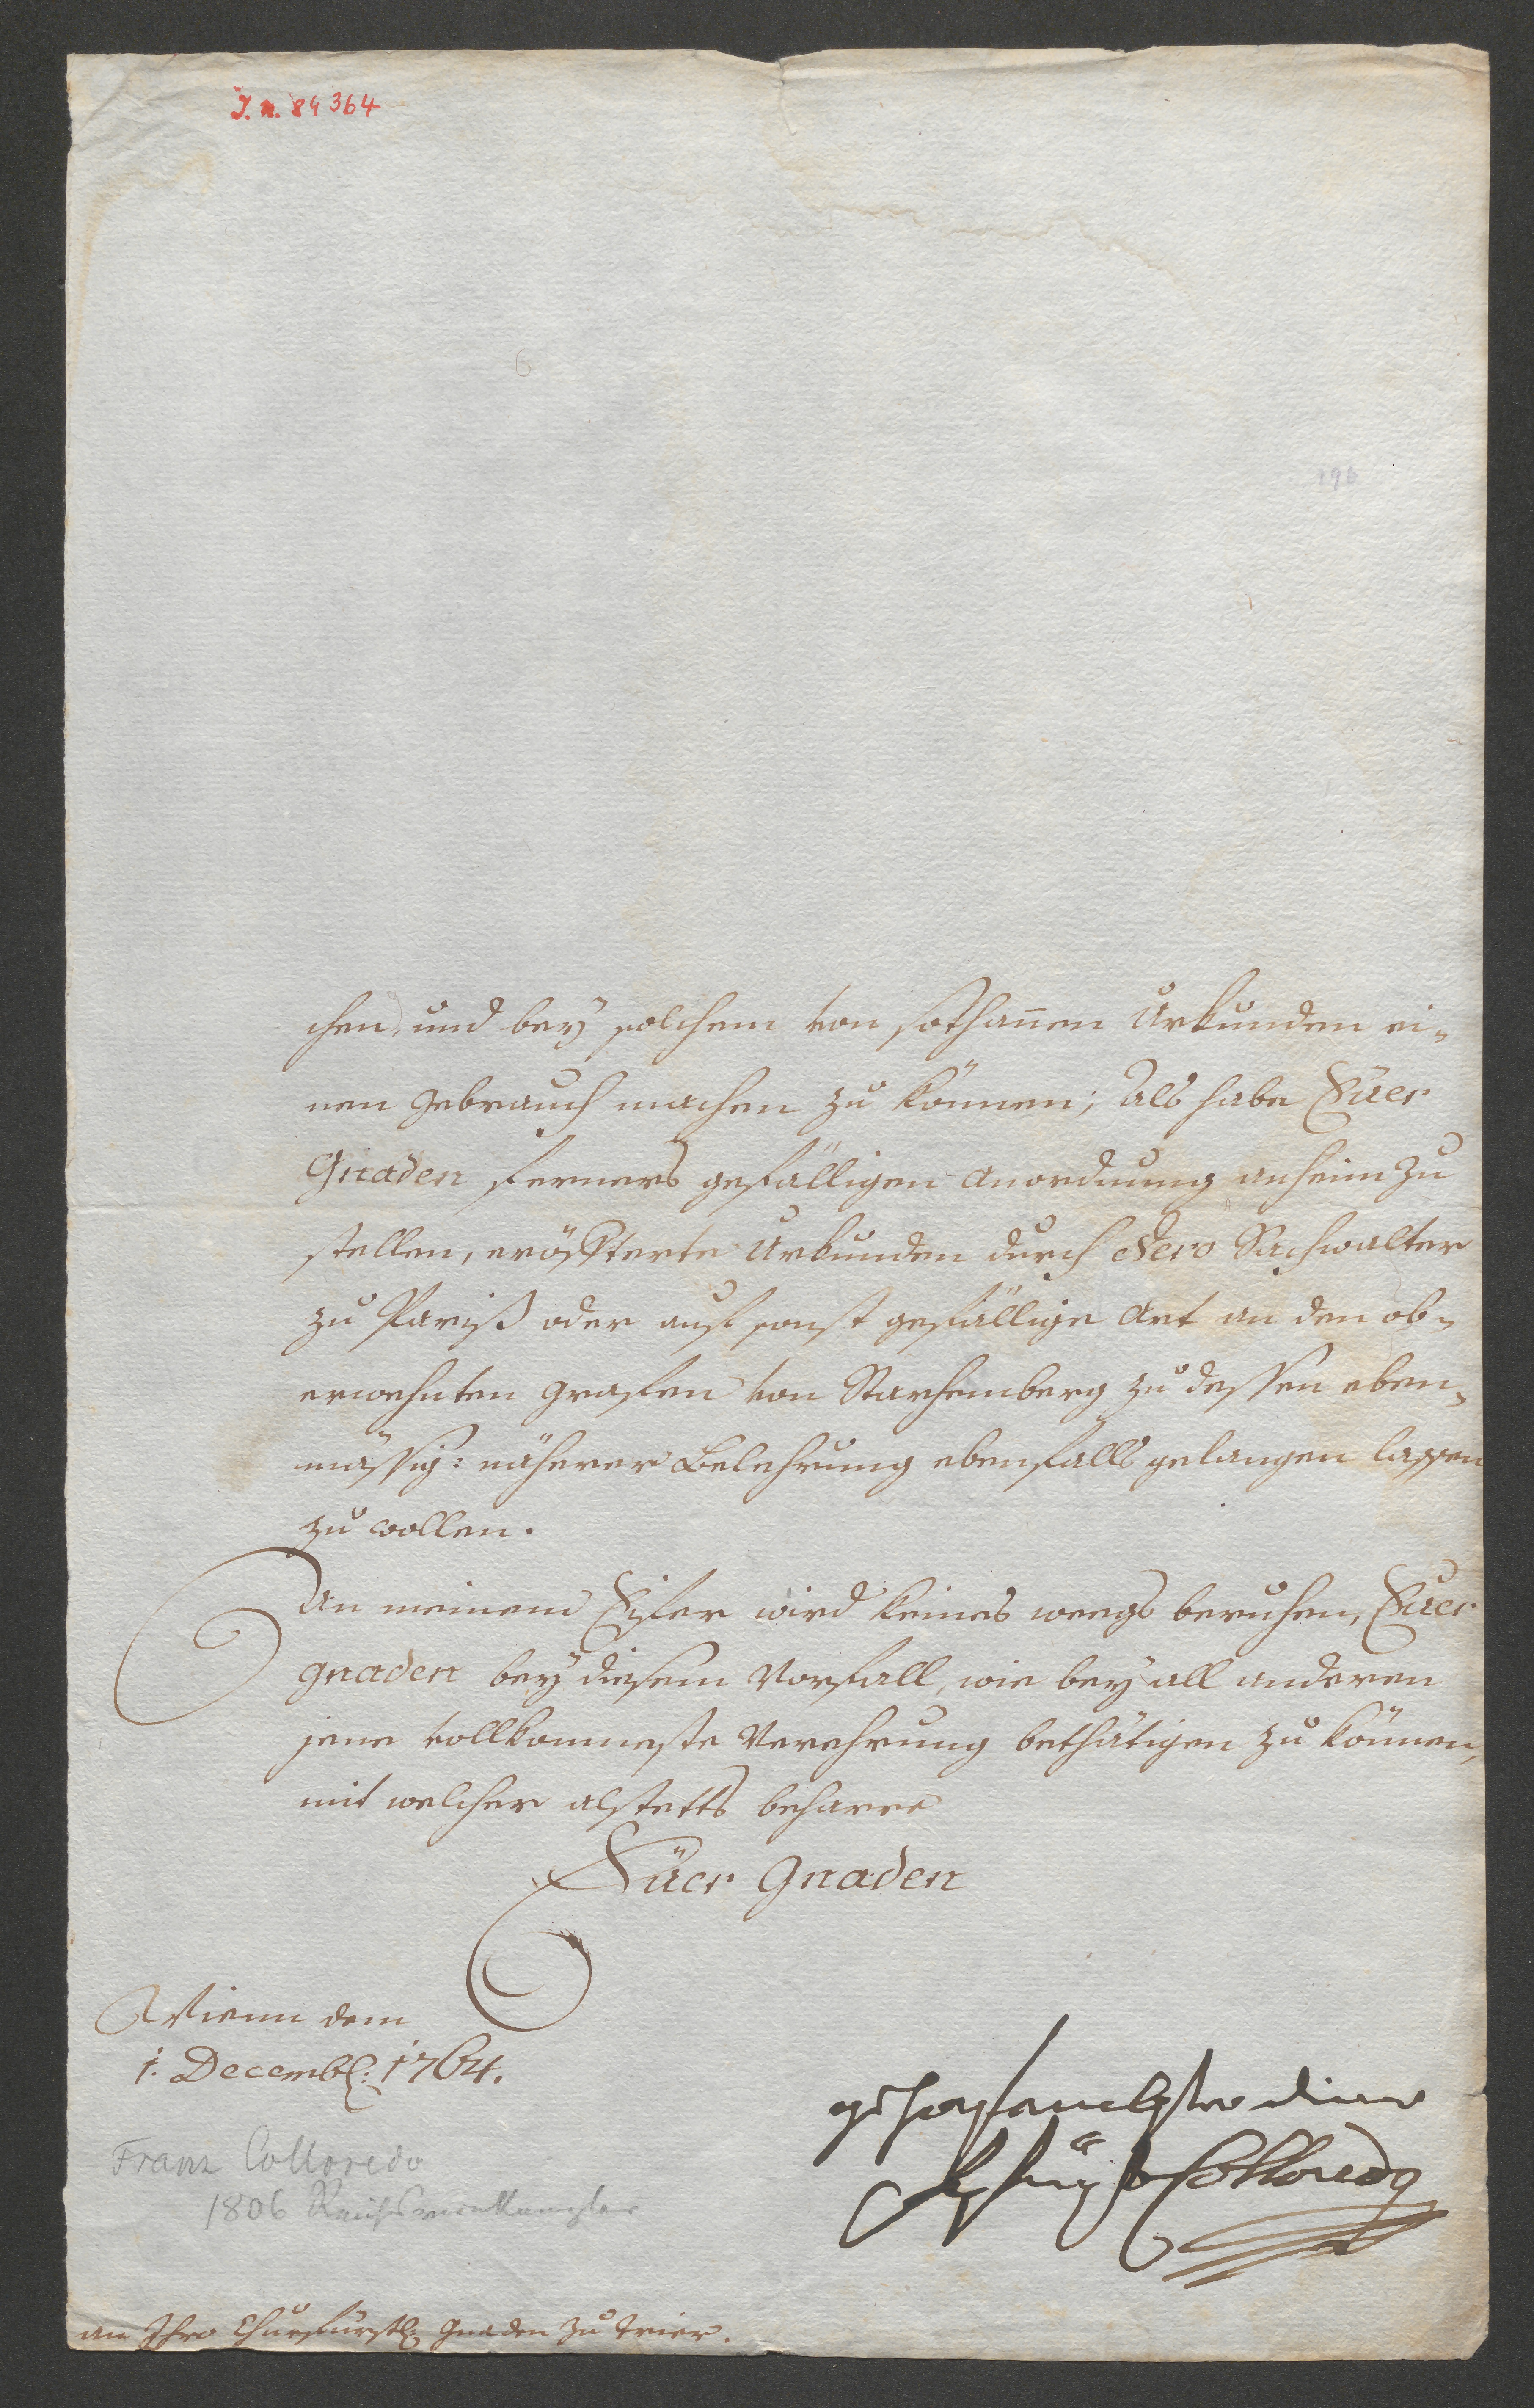 I. n. 84364
6
196
chen, und bey solchem von sothannen Urkunden ei-
nen Gebrauch machen zu können; Als habe Euer
Gnaden ferners gefälligen Anordnung anheim zu
stellen, erörtterte Urkunden durch dero Sachwalter
zu Pariß oder auf sonst gefällige Art an den ob-
erwehnten Grafen von Starhemberg zu dessen eben-
mässig: näherer Belehrung ebenfalls gelangen lassen
zu wollen.
An meinem Eifer wird keines weegs beruhen, Euer
Gnaden bey diesem Vorfall, wie bey all anderen
jene vollkommeste Verehrung bethätigen zu können,
mit welcher alstetts beharre
Eüer Gnaden
Wienn dem
1. Decembr: 1764.
gehorsambster diener
Colloredo
Franz Colloredo
1806 Reichsvicekanzler
an Ihro Churfürstl: Gnaden zu Trier.